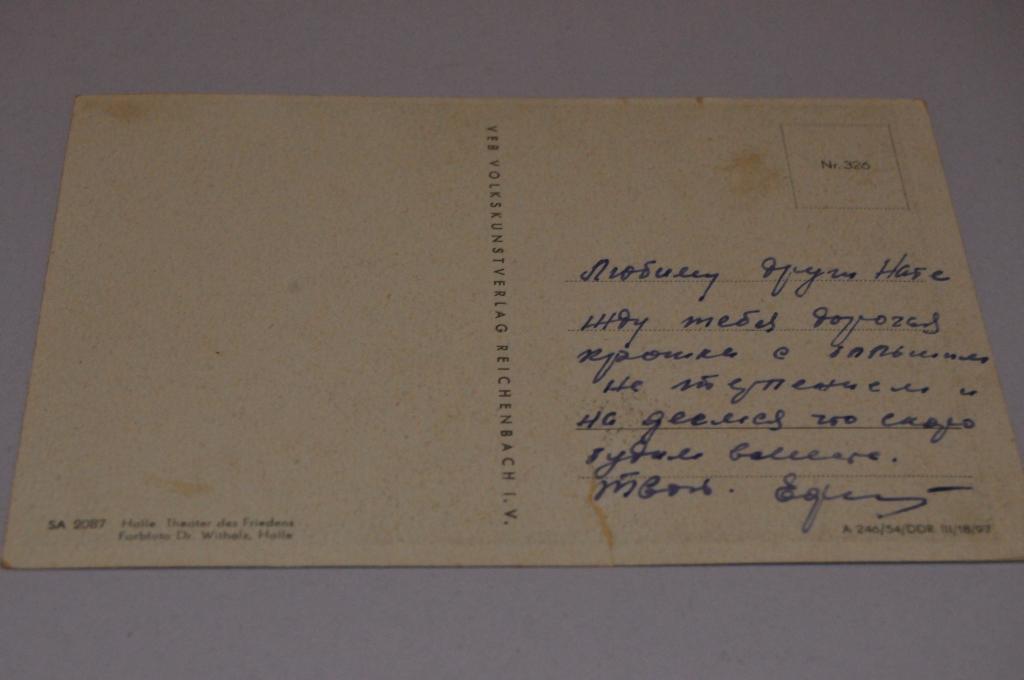 VEB VOLKSKUNSTVERLAG REICHENBACH I. V.
Nr. 326
Любиму другу Нате
жду тебя дорогая
крошка с большим
не терпением и
на деемся что скоро
будим вместе.
Твоя.
SA 2087 Halle. Theater des Friedens
Farbfoto Dr. Witholz, Halle
A 246/54/DDR III/18/97